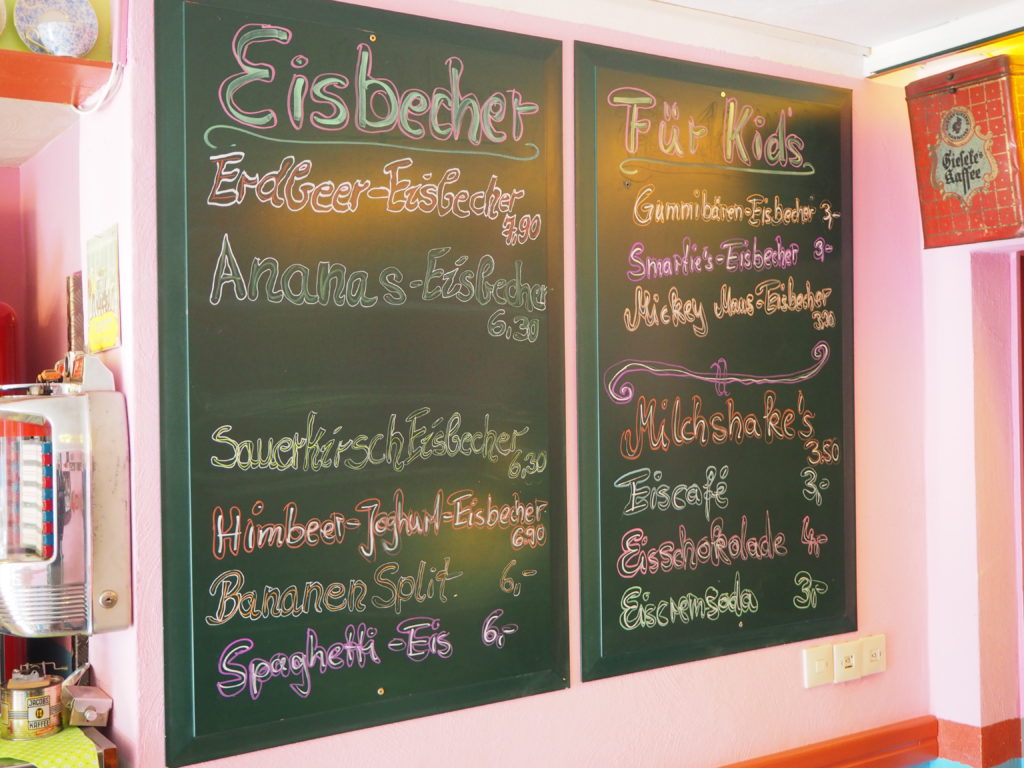 Eisbecher
Erdbeer-Eisbecher
7,90
Ananas-Eisbecher
6,30
Sauerkirsch Eisbecher
6,30
Himbeer-Joghurt-Eisbecher
6,90
Bananen Split 6,-
Spaghetti-Eis 6,-
Für Kids
Gummibären-Eisbecher 3,-
Smartie's-Eisbecher 3,-
Mickey Maus-Eisbecher
Milchshake's
3.50
Eiscafé 3,-
Eisschokolade 4,-
Eiscremsoda 3,-
Kaffee
JACOBS
KAFFEE